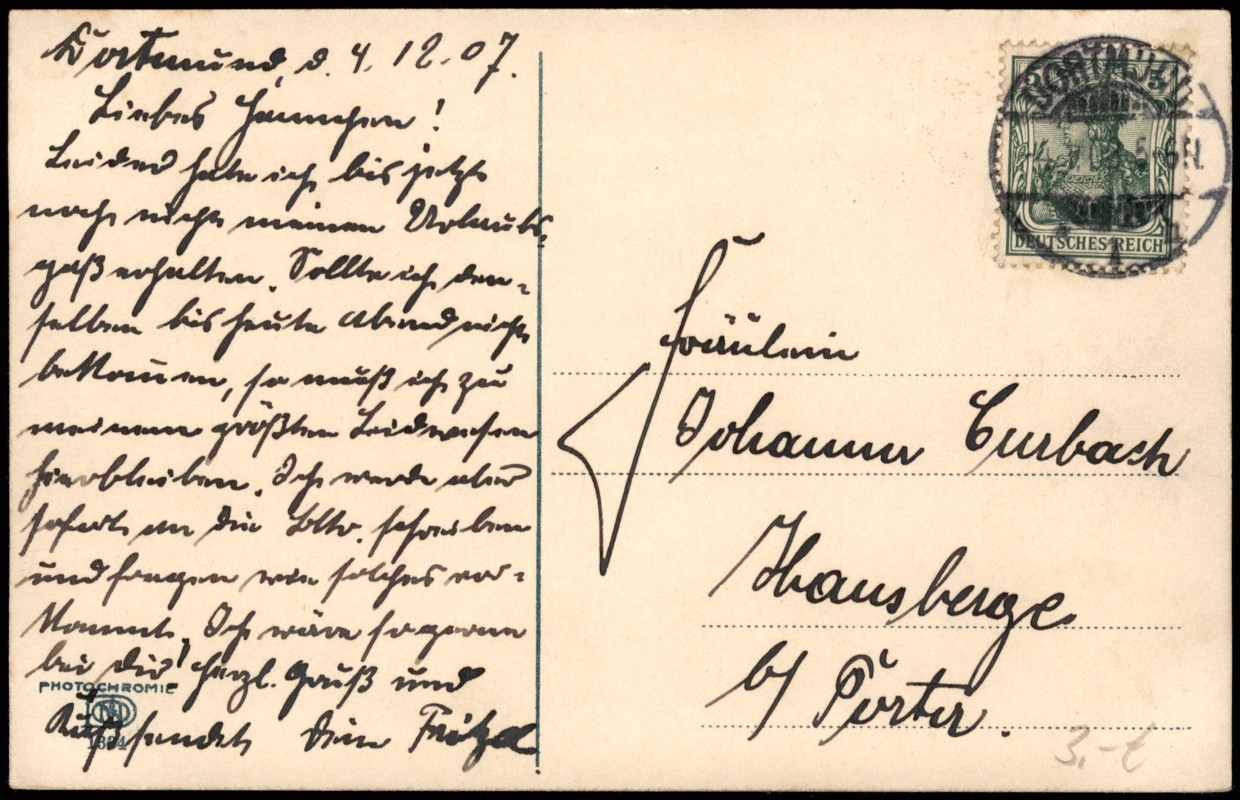 Dortmund, d. 4.12.07.
Liebes Hannchen!
Leider habe ich bis jetzt
noch nicht meinen Urlaubs-
paß erhalten. Sollte ich den-
selben bis heute Abend nicht
bekommen, so muß ich zu
meinem größten Leidwesen
hierbleiben. Ich werde aber
sofort an die schreiben
und fragen wie solches vor-
kommt. Ich wäre so gerne
bei dir! Herzl. Gruß und
Kuß sendet dein Fritz
PHOTOCHROMIE
DORTMUND
5-6N
1
DEUTSCHES REICH
Fräulein
Johanne Curbach
Hausberge
b/ Porta.
3,-